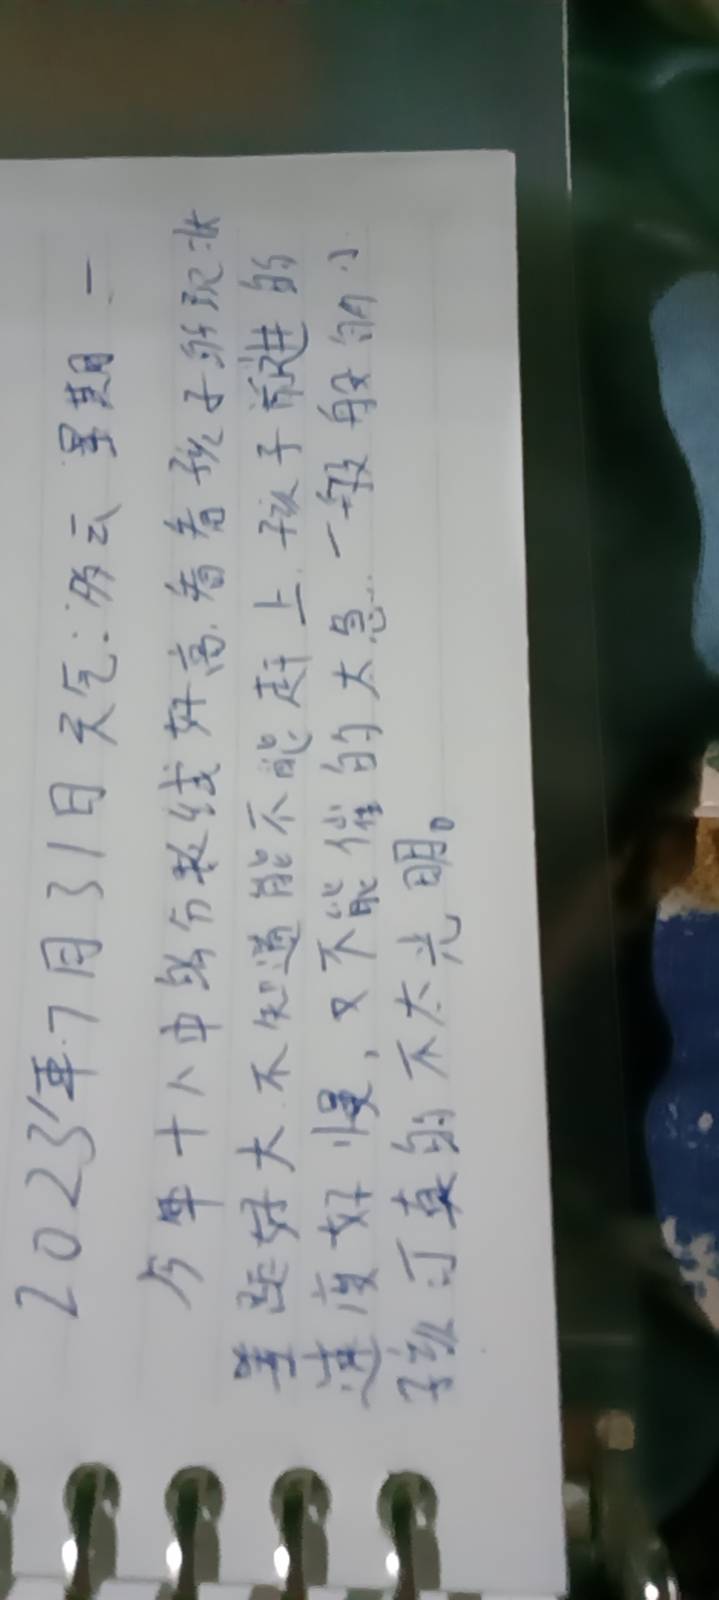 2023年7月31日天气:多云 星期一
今年十八中的分数线好高.看看孩子的现状
差距好大.不知道能不能赶上.孩子前进的
速度好慢,又不能催的太急..一般般的小
孩 真的不太光明。